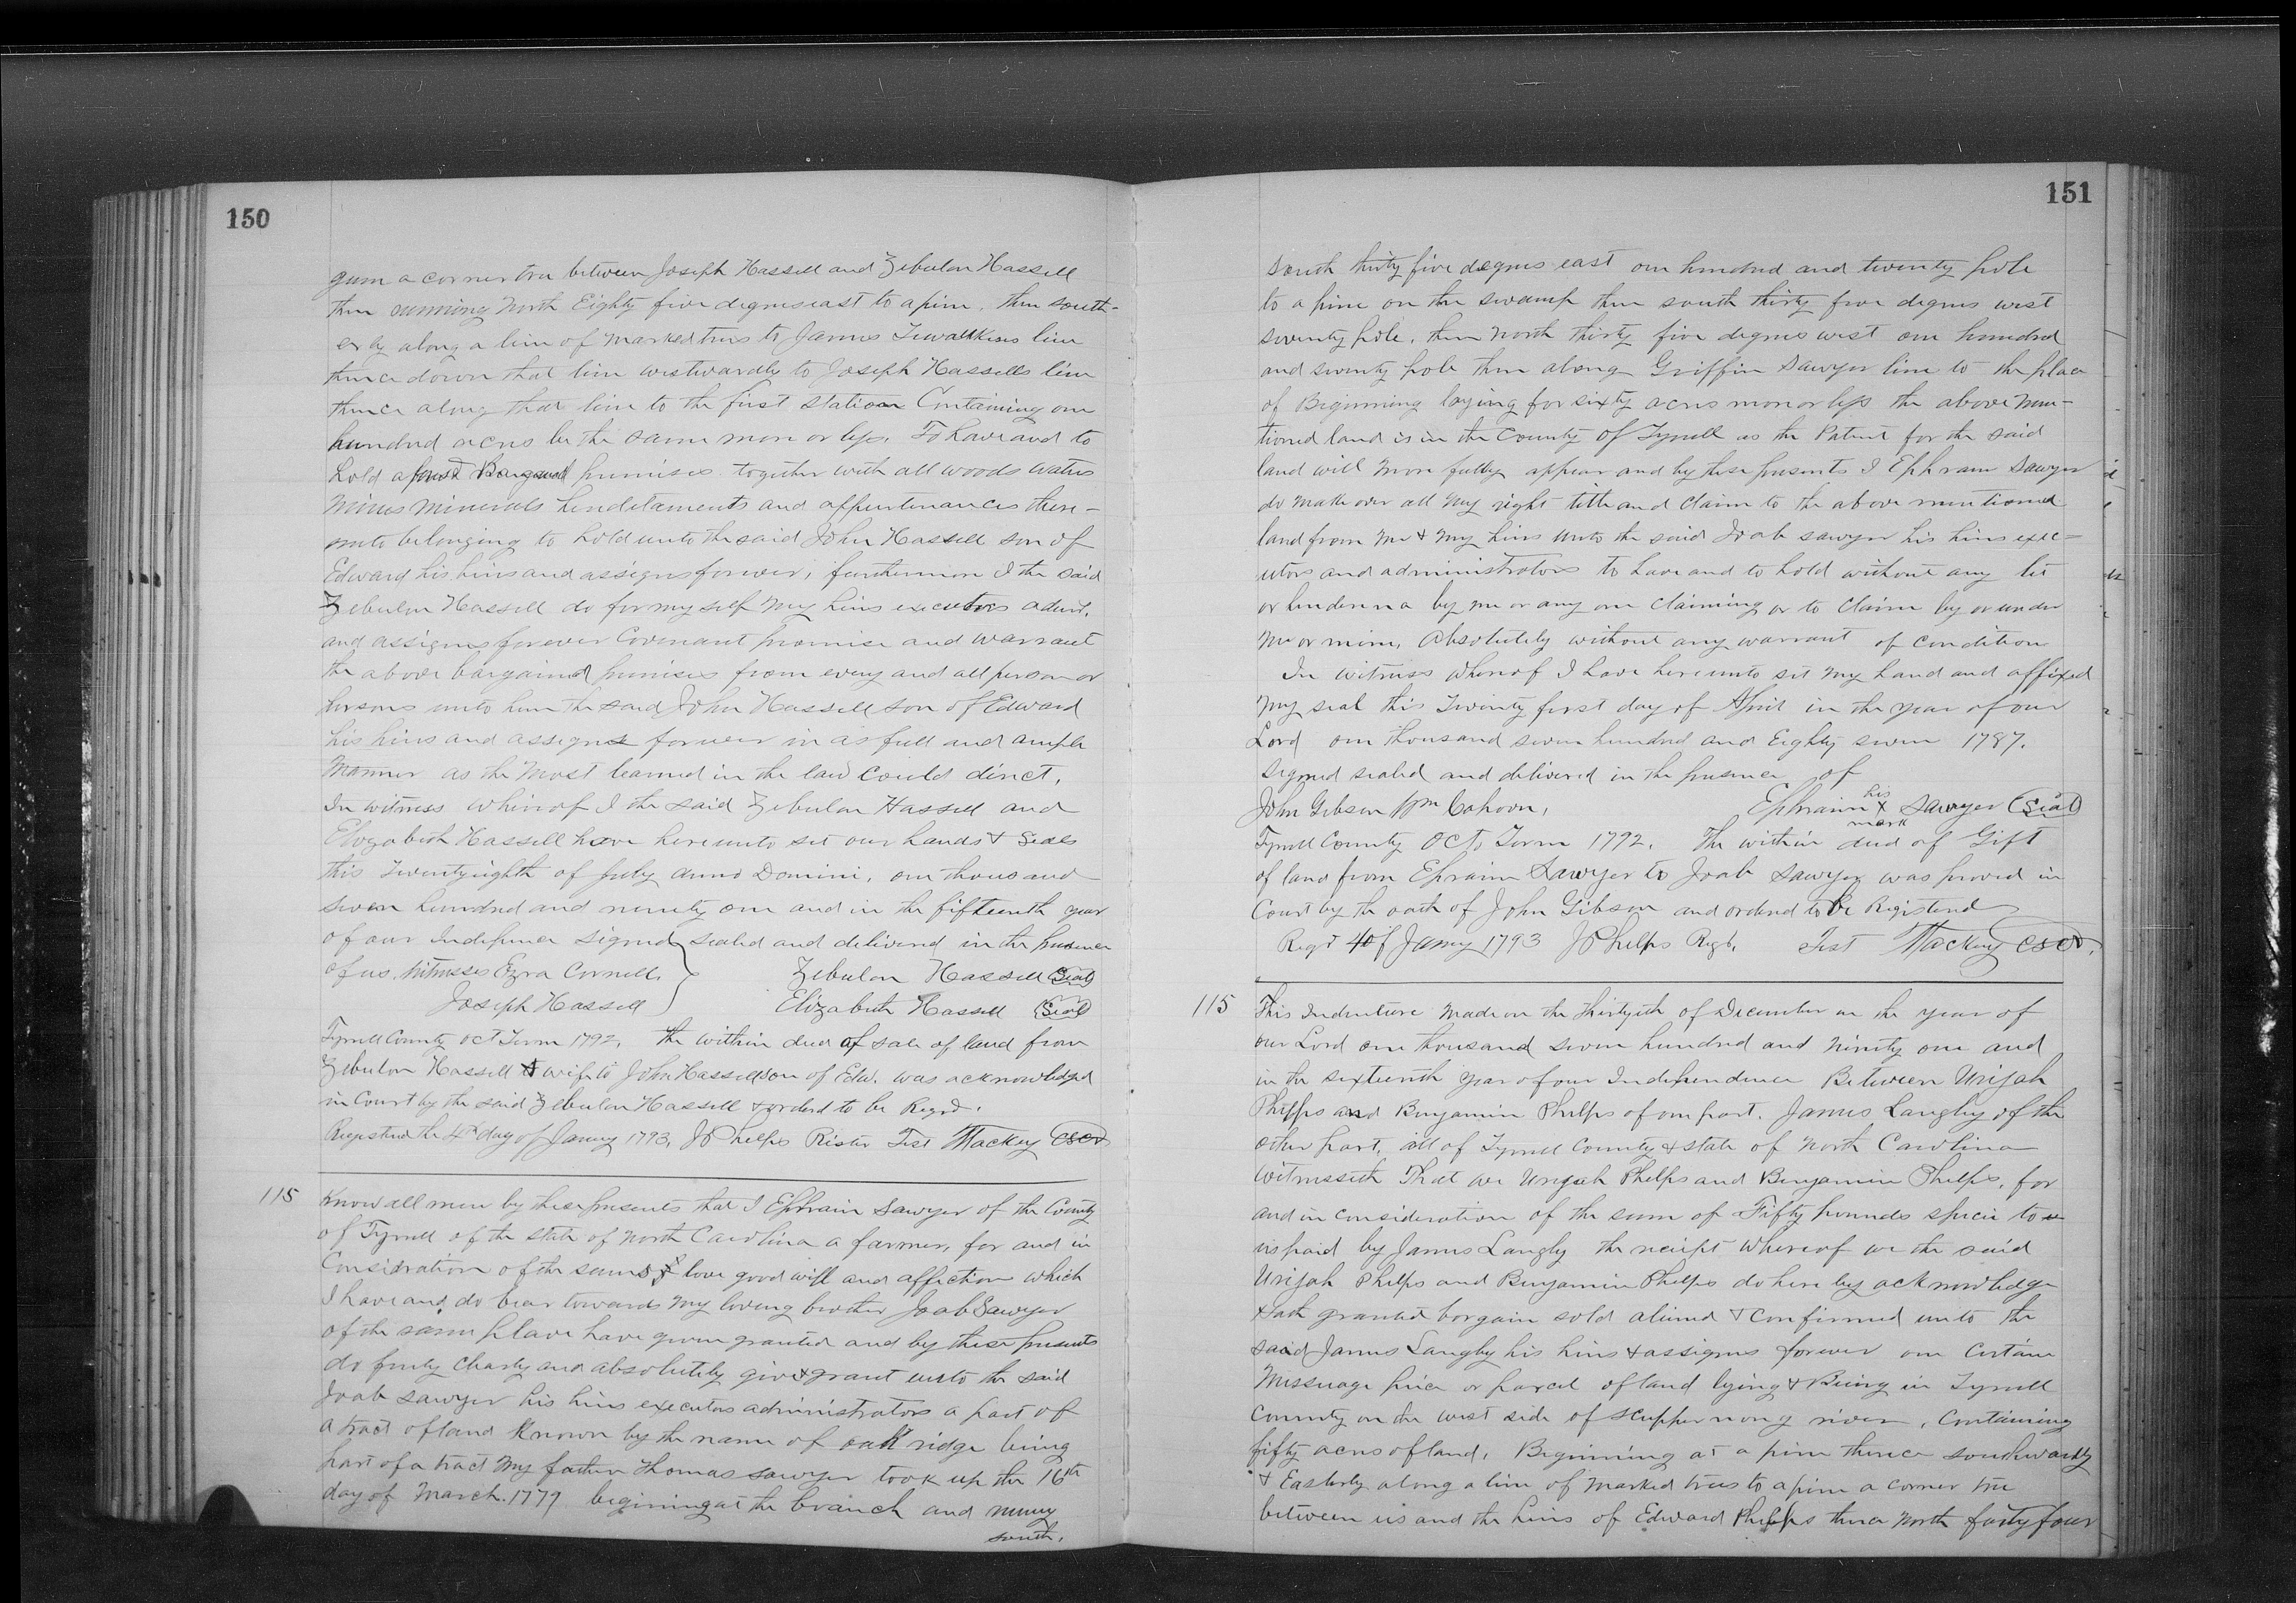 150
gum a corner tree between Joseph Hassell and Zebulon Hassell
then running North Eighty five degrees east to a pine, then south-
erly along a line of marked trees to James line
thence down that line westwardly to Joseph Hassells line
thence along that line to the first station Containing one
hundred acres be the same more or less. To have and to
hold premises together with all woods waters
mines minerals heredetaments and appurtenances there-
unto belonging to hold unto the said John Hassell son of
Edward his heirs and assigns forever, furthermore I the said
Zebulon Hassell do for my self my heirs executors admt.
and assigns forever Covenant promise and warrant
the above bargained premises from every and all person or
persons unto him the said John Hassell son of Edward
his heirs and assigns forever in as full and ample
manner as the most learned in the law could direct.
In witness whereof I the said Zebulon Hassell and
Elizabeth Hassell have hereunto set our hands & seals
this Twentyeighth of July anno Domini, one thousand
seven hundred and ninety one and in the fifteenth year
of our Independence signed sealed and delivered in the presence
of us. Witnesses Ezra Cornell, Zebulon Hassell Seal
Joseph Hassell Elizabeth Hassell Seal
Tyrrell County Oct Term 1792. The within deed of sale of land from
Zebulon Hassell & wife to John Hassell son of Edw. was acknowledged
in Court by the said Zebulon Hassell & orderd to be Regrd.
Registered the 4th day of Janury 1793, J Phelps Rister Test Mackey CSCD
115 Know all men by these presents that I Ephraim Sawyer of the County
of Tyrrell of the state of North Carolina a farmer, for and in
Consideration of the sums of love good will and affection which
I have and do bear towards my loving brother Joab Sawyer
of the same place have given granted and by these presents
do freely clearly and absolutely give & grant unto the said
Joab Sawyer his heirs executors administrators a part of
a tract of land known by the name of oak ridge being
part of a tract my father Thomas Sawyer took up the 16th
day of March. 1779 begining at the branch and
south.
151
South thirty five degrees east one hundred and twenty pole
to a pine on the swamp then south thirty five degrees west
seventy pole, then North thirty five degrees west one hundred
and seventy pole then along Griffin Sawyer line to the place
of Beginning laying for sixty acres more or less the above men-
tioned land is in the County of Tyrrell as the Patent for the said
land will more fully appear and by these presents I Ephraim Sawyer
do make over all my right title and claim to the above mentioned
land from me & my heirs unto the said Joab Sawyer his heirs exec=
utors and administrators to have and to hold without any let
or by me or any one claiming or to claim by or under
me or mine, absolutely without any warrant of condition
In witness whereof I have hereunto set my hand and affixed
my seal this Twenty first day of April in the year of our
Lord one thousand seven hundred and Eighty seven 1787.
Signed sealed and delivered in the presence of
John Gibson Wm Cahoon, Ephraim his X mark Sawyer Seal
Tyrrell County Oct Term 1792. The within deed of Gift
of land from Ephraim Sawyer to Joab Sawyer was proved in
Court by the oath of John Gibson and orderd to be Registered
Regd 4 of Janury 1793 J Phelps Regt. Test Mackey CSCD.
115 This Indenture made on the Thirtyeth of December in the year of
our Lord one thousand seven hundred and Ninety one and
in the sixteenth year of our Independence Between Urijah
Phelps and Benjamin Phelps of one part. James Langley of the
other part, all of Tyrrell County & state of North Carolina
Witnesseth That we Urijah Phelps and Benjamin Phelps, for
and in consideration of the sum of Fifty pounds specie to
us paid by James Langly the receipt whereof we the said
Urijah Phelps and Benjamin Phelps do here by acknowledge
& hath granted bargain sold aliened & confirmed unto the
said James Langby his heirs & assigns forever one certain
Messuage piece or parcel of land lying & Being in Tyrrell
County on the west side of Scuppernong river, containing
fifty acres of land, Beginning at a pine thence southwardly
& Easterly along a line of marked trees to a pine a corner tree
between us and the heirs of Edward Phelps thence North forty four